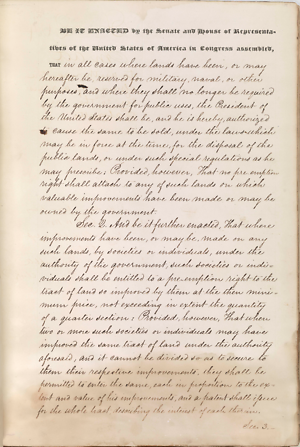 BE IT ENACTED by the Senate and House of Representa-
tives of the United States of America in Congress assembled,
THAT in all cases where lands have been, or may
hereafter be, reserved for military, naval, or other
purposes, and where they shall no longer be required
by the government for public uses, the President of
the United States shall be, and he is hereby, authorized
to cause the same to be sold, under the laws which
may be in force at the time, for the disposal of the
public lands, or under such special regulations as he
may prescribe; Provided, however, That no pre-emption
right shall attach to any of such lands on which
valuable improvements have been made or may be
owned by the government.
Sec. 2. And be it further enacted, That where
improvements have been, or may be, made on any
such lands, by societies or individuals, under the
authority of the government, such societies or indi-
viduals shall be entitled to a pre-emption right to the
tract of land so improved by them at the then mini-
mum price, not exceeding in extent the quantity
of a quarter section; Provided, however, That when
two or more such societies or individuals may have
improved the same tract of land under the authority
aforesaid, and it cannot be divided so as to secure to
them their respective improvements, they shall be
permitted to enter the same, each in proportion to the ex-
tent and value of his improvements, and a patent shall issue
for the whole tract describing the interest of each therein.
Sec. 3.